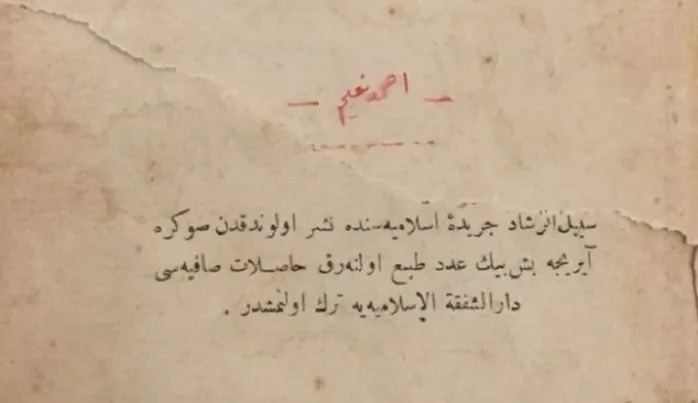 — احمد نعيم —
سبيل الرشاد جريدۀ اسلاميه‌سنده نشر اولوندقدن صوكره
آيريجه بش بيك عدد طبع اولنه‌رق حاصلات صافيه‌سى
دار الشفقة الإسلاميه‌يه ترك اولنمشدر .